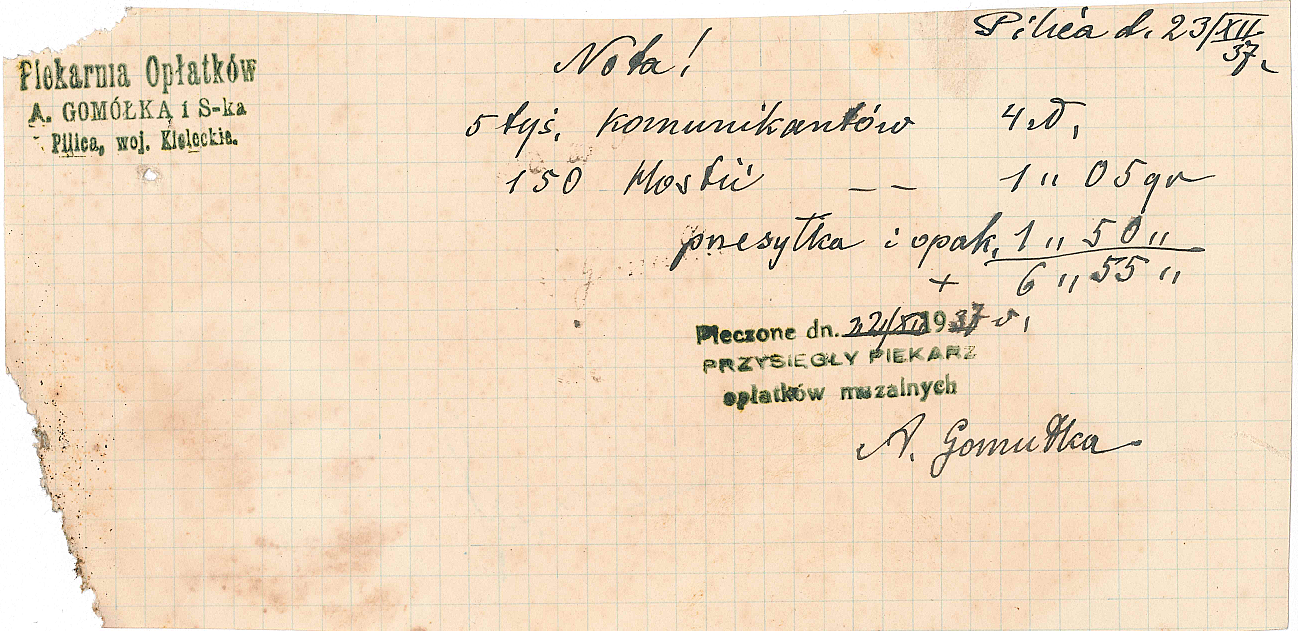 Pilica d. 23/XII
37.
Piekarnia Opłatków
A. GOMÓŁKA i S-ka
Pilica, woj. Kieleckie.
Nota!
5 tyś. komunikantów 4 zł.
150 Hostii — — 1 " 05 gr
przesyłka i opak. 1 " 50 "
+ 6 " 55 "
Pieczone dn. 22/XII 1937 r.
PRZYSIĘGŁY PIEKARZ
opłatków mszalnych
A. Gomułka